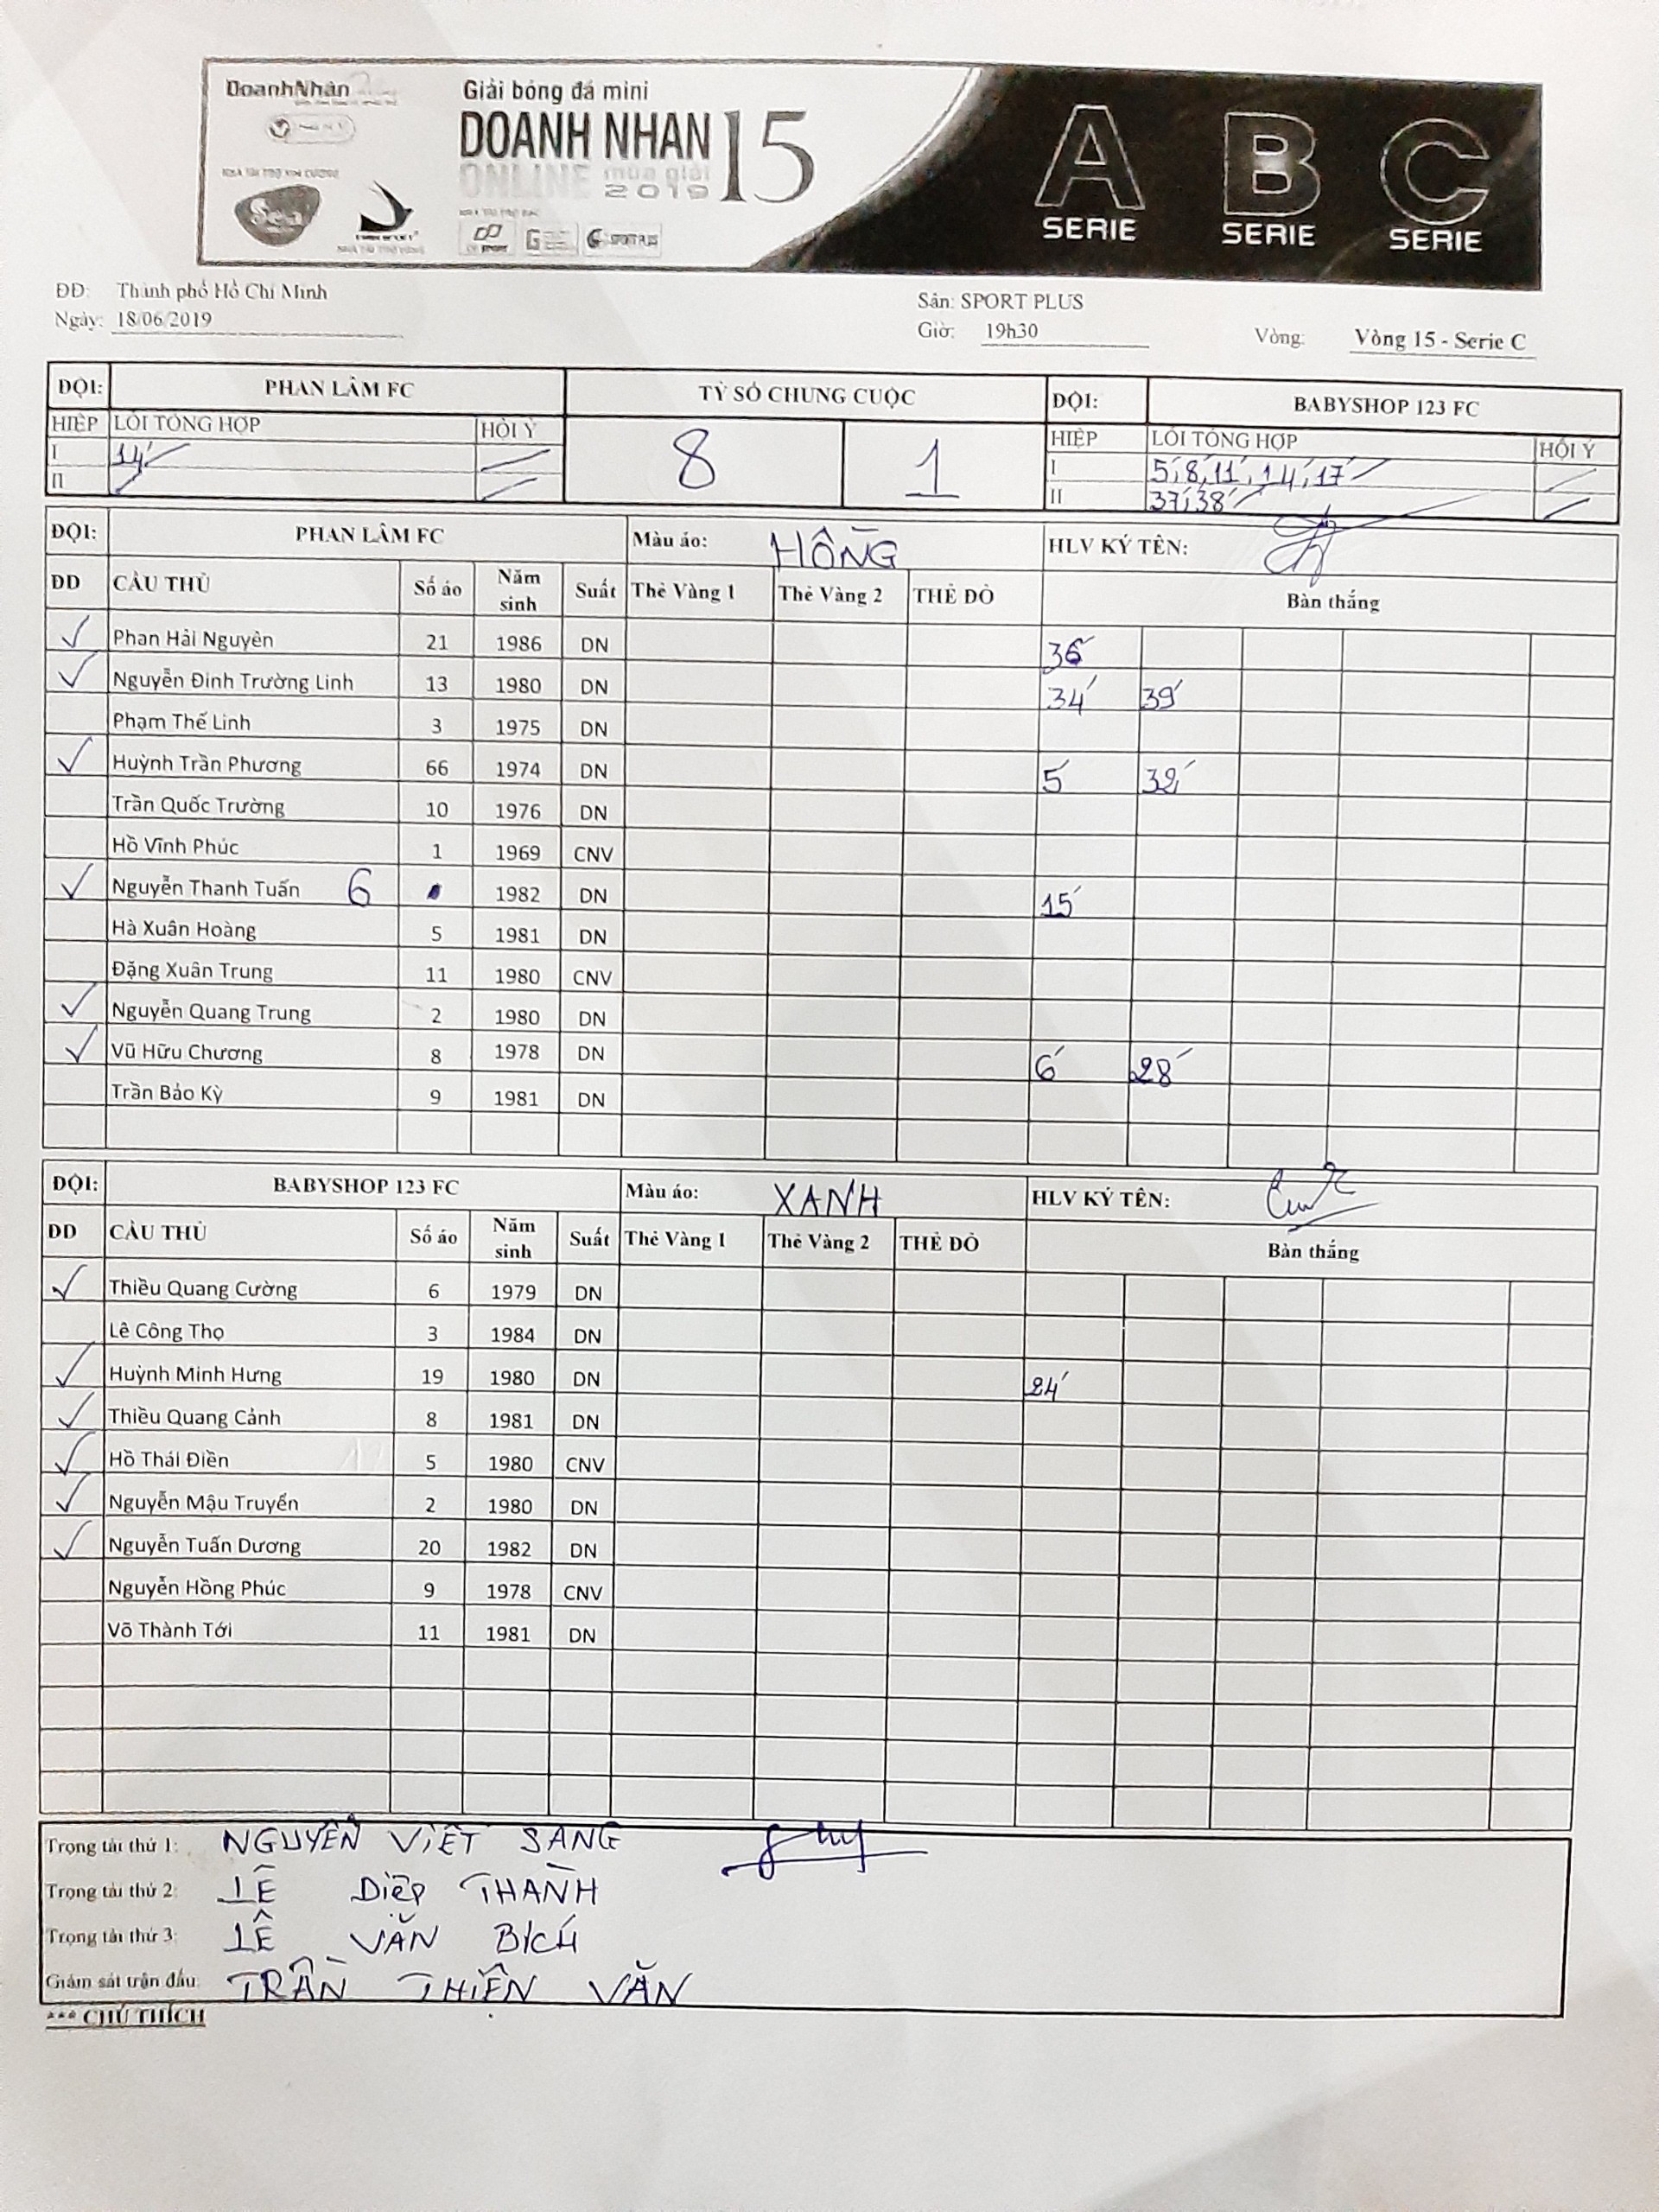 DoanhNhân
Giải bóng đá mini
DOANH NHAN 15
ONLINE mùa giải
2019
NHÀ TÀI TRỢ KIM CƯƠNG
Sea
SPORT PLUS
A B C
SERIE SERIE SERIE
ĐĐ: Thành phố Hồ Chí Minh Sân: SPORT PLUS
Ngày: 18/06/2019 Giờ: 19h30 Vòng: Vòng 15 - Serie C
ĐỘI: PHAN LÂM FC TỶ SỐ CHUNG CUỘC ĐỘI: BABYSHOP 123 FC
HIỆP LỖI TỔNG HỢP HỘI Ý 8 1 HIỆP LỖI TỔNG HỢP HỘI Ý
I 14' I 5', 8', 11', 14', 17'
II II 37', 38'
ĐỘI: PHAN LÂM FC Màu áo: HỒNG HLV KÝ TÊN:
DD CẦU THỦ Số áo Năm sinh Suất Thẻ Vàng 1 Thẻ Vàng 2 THẺ ĐỎ Bàn thắng
✓ Phan Hải Nguyên 21 1986 DN 36'
✓ Nguyễn Đinh Trường Linh 13 1980 DN 34' 39'
Phạm Thế Linh 3 1975 DN
✓ Huỳnh Trần Phương 66 1974 DN 5' 32'
Trần Quốc Trường 10 1976 DN
Hồ Vĩnh Phúc 1 1969 CNV
✓ Nguyễn Thanh Tuấn 6 1982 DN 15'
Hà Xuân Hoàng 5 1981 DN
Đặng Xuân Trung 11 1980 CNV
✓ Nguyễn Quang Trung 2 1980 DN
✓ Vũ Hữu Chương 8 1978 DN 6' 28'
Trần Bảo Kỳ 9 1981 DN
ĐỘI: BABYSHOP 123 FC Màu áo: XANH HLV KÝ TÊN:
DD CẦU THỦ Số áo Năm sinh Suất Thẻ Vàng 1 Thẻ Vàng 2 THẺ ĐỎ Bàn thắng
✓ Thiều Quang Cường 6 1979 DN
Lê Công Thọ 3 1984 DN
✓ Huỳnh Minh Hưng 19 1980 DN 24'
✓ Thiều Quang Cảnh 8 1981 DN
✓ Hồ Thái Điền 5 1980 CNV
✓ Nguyễn Mậu Truyển 2 1980 DN
✓ Nguyễn Tuấn Dương 20 1982 DN
Nguyễn Hồng Phúc 9 1978 CNV
Võ Thành Tới 11 1981 DN
Trọng tài thứ 1: NGUYỄN VIẾT SANG
Trọng tài thứ 2: LÊ DIỆP THÀNH
Trọng tài thứ 3: LÊ VĂN BÍCH
Giám sát trận đấu: TRẦN THIÊN VĂN
*** CHÚ THÍCH